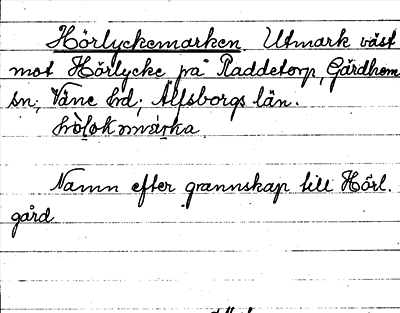 Hörlyckemarken. Utmark väst
mot Hörlycke på Raddetorp, Gärdhem
sn; Väne hd; Älfsborgs län.
hö̀lok mar̀ka
Namn efter grannskap till Hörl.
gård